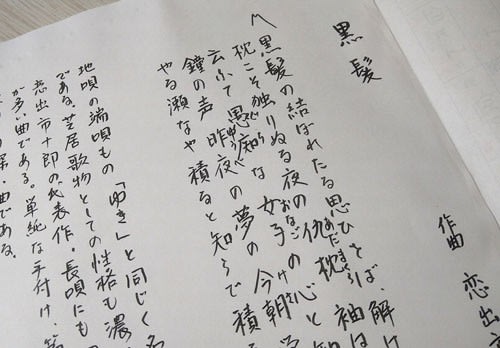 黒髪
作曲 恋出市
〽黒髪の結ばれたる思ひをば、解け
枕こそ独りぬる夜の仇枕 袖は
云ふて愚痴な女子の心と
鐘の声 昨夜の夢の今朝
やる瀬なや 積ると知らで 積
地唄の端唄もの「ゆき」と同じく
である。芝居歌物としての性格も濃
恋出市十郎の代表作。長唄にも
が多い曲である。単純な手付け、
曲である。